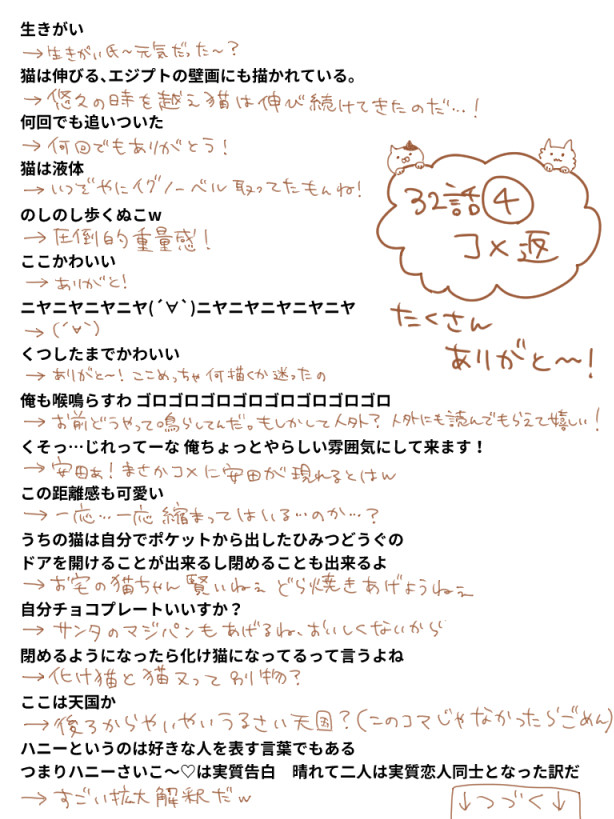 生きがい
→生きがい氏〜元気だった〜？
猫は伸びる、エジプトの壁画にも描かれている。
→悠久の時を越え猫は伸び続けてきたのだ…！
何回でも追いついた
→何回でもありがとう！
猫は液体
→いつぞやにイグノーベル取ってたもんね！
のしのし歩くぬこw
→圧倒的重量感！
32話④
コメ返
たくさん
ありがと〜！
ここかわいい
→ありがと！
ニヤニヤニヤニヤ(´∀`)ニヤニヤニヤニヤニヤ
→(´∀`)
くつしたまでかわいい
→ありがと〜！ここめっちゃ何描くか迷ったの
俺も喉鳴らすわ ゴロゴロゴロゴロゴロゴロゴロゴロ
→お前どうやって鳴らしてんだ。もしかして人外？人外にも読んでもらえて嬉しい！
くそっ…じれってーな 俺ちょっとやらしい雰囲気にして来ます！
→安田ぁ！まさかコメに安田が現れるとはw
この距離感も可愛い
→一応…一応縮まってはいる…のか…？
うちの猫は自分でポケットから出したひみつどうぐの
ドアを開けることが出来るし閉めることも出来るよ
→お宅の猫ちゃん賢いねぇ どら焼きあげようねぇ
自分チョコプレートいいすか？
→サンタのマジパンもあげるね、おいしくないから
閉めるようになったら化け猫になってるって言うよね
→化け猫と猫又って別物？
ここは天国か
→後ろからやいやいうるさい天国？(このコマじゃなかったらごめん)
ハニーというのは好きな人を表す言葉でもある
つまりハニーさいこ〜♡は実質告白　晴れて二人は実質恋人同士となった訳だ
→すごい拡大解釈だw
↓つづく↓